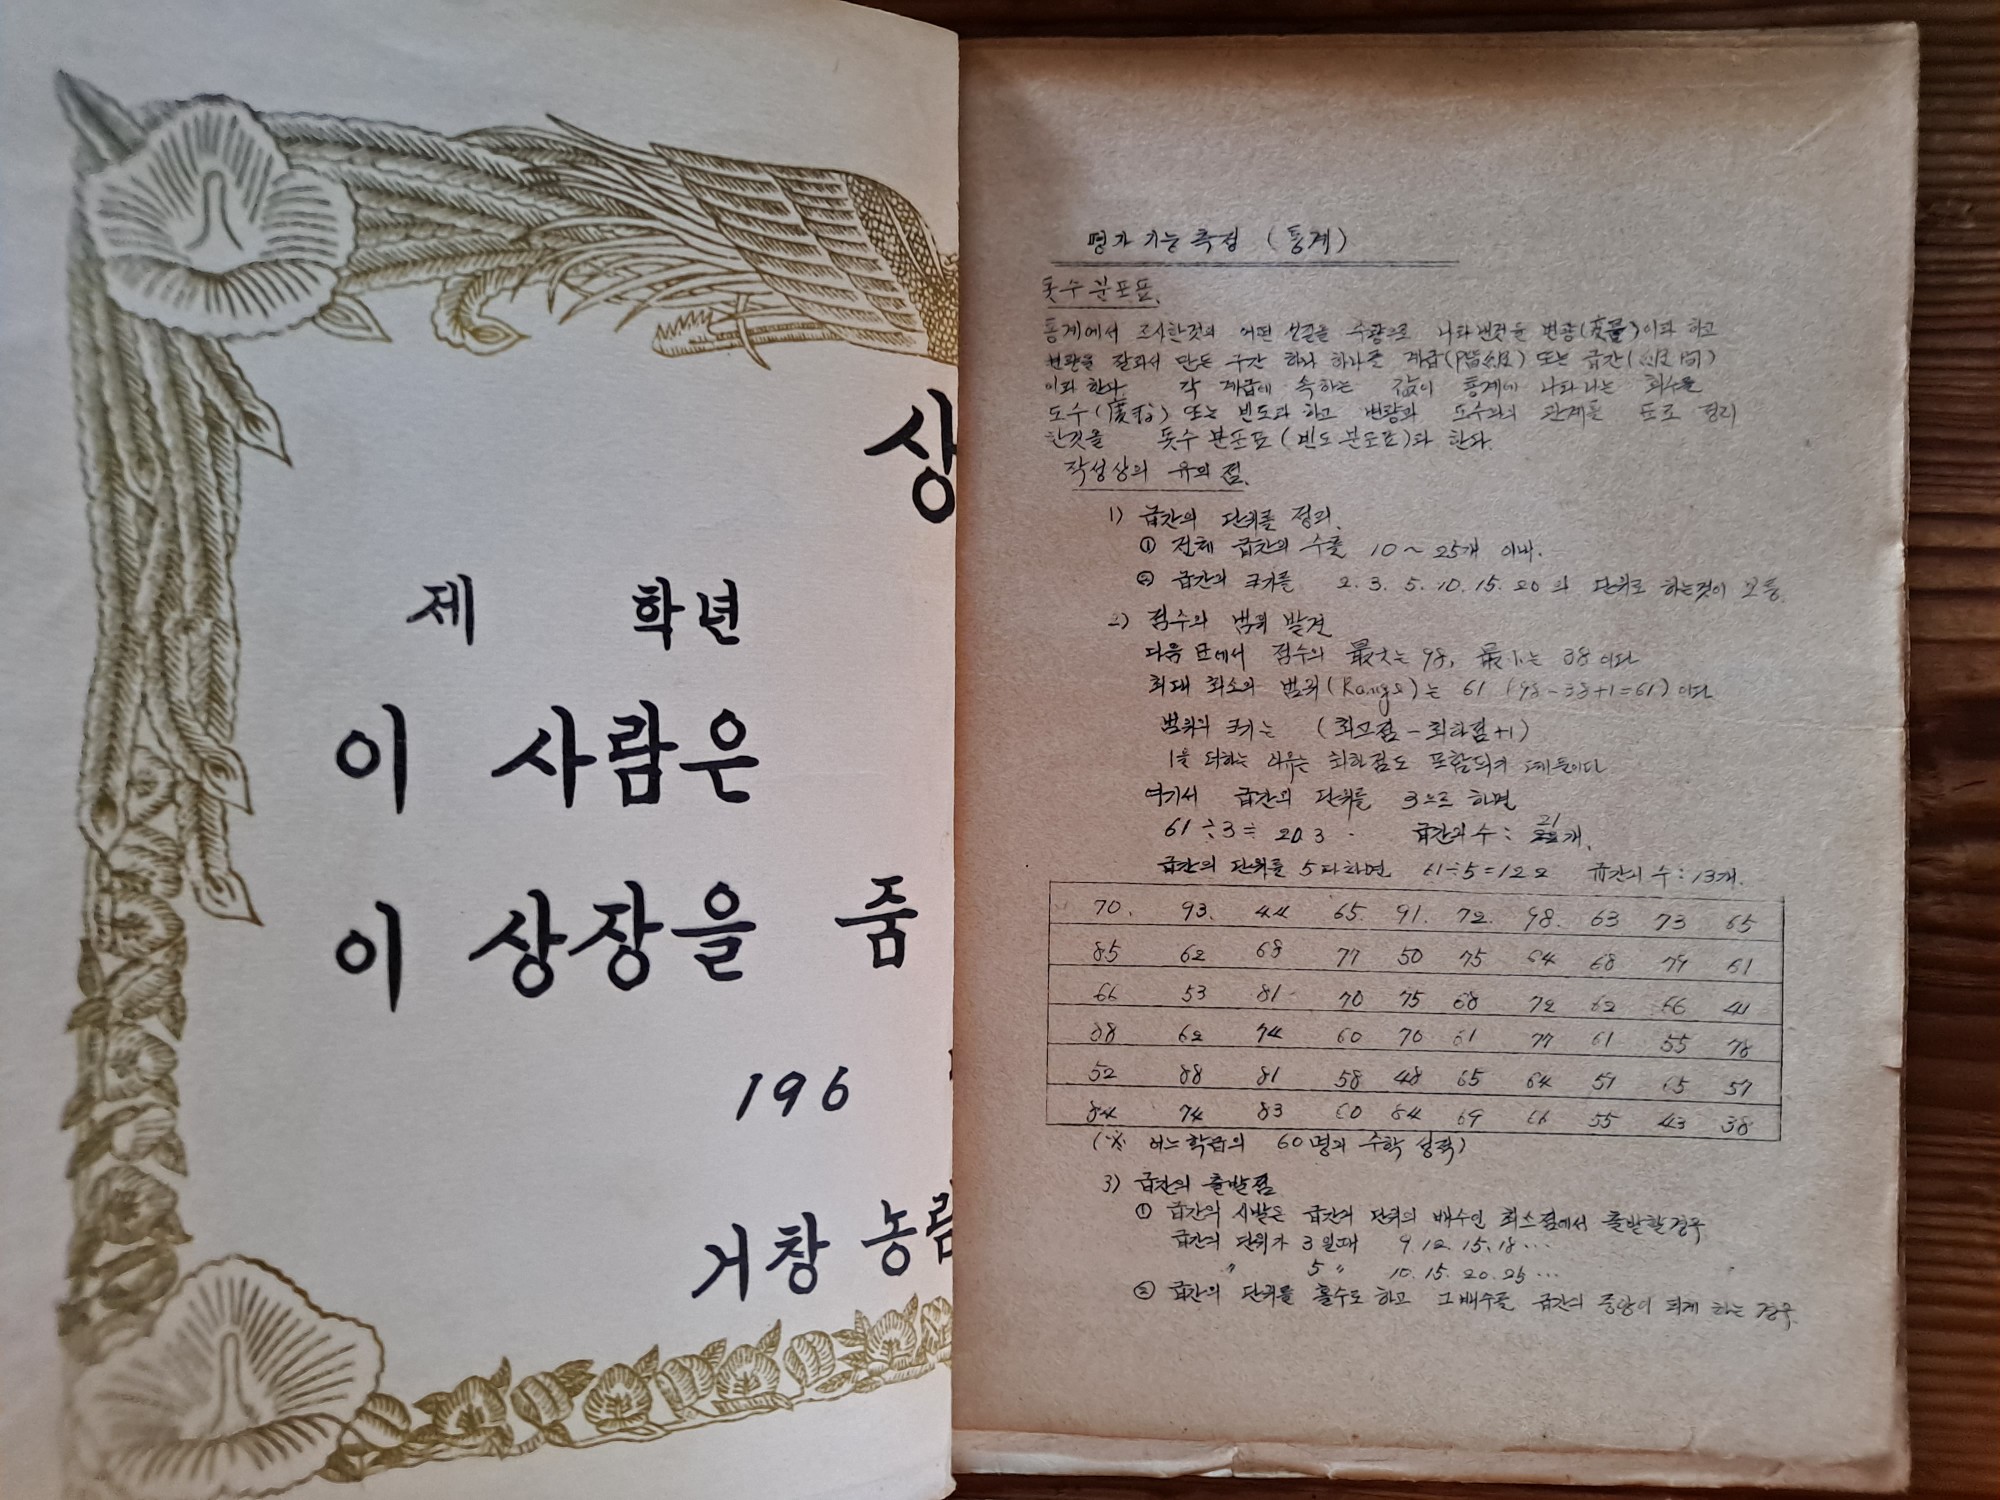 상
제 학년
이 사람은
이 상장을 줌
196
거창 농림
평가 기능 측정 (통계)
돗수 분포표.
통계에서 조사한것의 어떤 성질을 수량으로 나타낸것을 변량(変量)이라 하고
변량을 잘라서 만든 구간 하나 하나를 계급(階級) 또는 급간(級間)
이라 한다. 각 계급에 속하는 값이 통계에 나타나는 회수를
도수(度数) 또는 빈도라 하고 변량과 도수와의 관계를 표로 정리
한것을 돗수 분포표(빈도 분포표)라 한다.
작성상의 유의점.
1) 급간의 단위를 정리.
① 전체 급간의 수를 10~25개 이내.
② 급간의 크기를 2. 3. 5. 10. 15. 20의 단위로 하는것이 보통
2) 점수의 범위 발견
다음 표에서 점수의 最大는 98, 最小는 38이다
최대 최소의 범위(Range)는 61 (98-38+1=61)이다
범위의 크기는 (최고점-최하점+1)
1을 더하는 이유는 최하점도 포함되기 때문이다
여기서 급간의 단위를 3으로 하면
61÷3≒20.3 급간의 수: 21개.
급간의 단위를 5라하면 61÷5=12.2 급간의 수: 13개.
70. 93. 44 65. 91. 72. 98. 63 73 65
85 62 68 77 50 75 64 68 79 61
66 53 81 70 75 68 72 62 66 41
88 62 74 60 70 61 77 61 55 78
52 88 81 58 48 65 64 51 65 57
84 74 83 60 84 69 66 55 43 38
(※ 어느학급의 60명의 수학 성적)
3) 급간의 출발점
① 급간의 시발은 급간의 단위의 배수인 최소점에서 출발할경우
급간의 단위가 3일때 9. 12. 15. 18...
〃 5〃 10. 15. 20. 25...
② 급간의 단위를 홀수로 하고 그배수를 급간의 중앙이 되게 하는 경우.